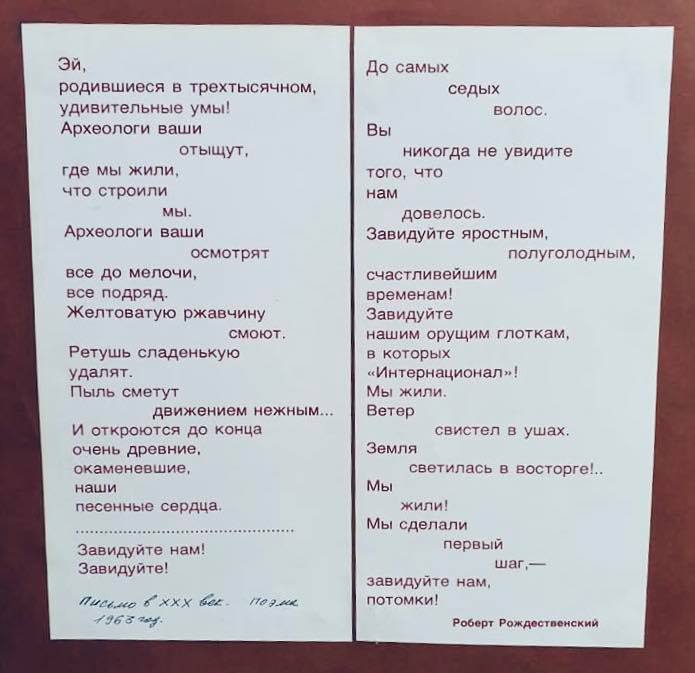 Эй,
родившиеся в трехтысячном,
удивительные умы!
Археологи ваши
отыщут,
где мы жили,
что строили
мы.
Археологи ваши
осмотрят
все до мелочи,
все подряд.
Желтоватую ржавчину
смоют.
Ретушь сладенькую
удалят.
Пыль сметут
движением нежным...
И откроются до конца
очень древние,
окаменевшие,
наши
песенные сердца.
........................................
Завидуйте нам!
Завидуйте!
Письмо в XXX век. Поэма
1963 год.
До самых
седых
волос.
Вы
никогда не увидите
того, что
нам
довелось.
Завидуйте яростным,
полуголодным,
счастливейшим
временам!
Завидуйте
нашим орущим глоткам,
в которых
«Интернационал»!
Мы жили.
Ветер
свистел в ушах.
Земля
светилась в восторге!..
Мы
жили!
Мы сделали
первый
шаг,—
завидуйте нам,
потомки!
Роберт Рождественский